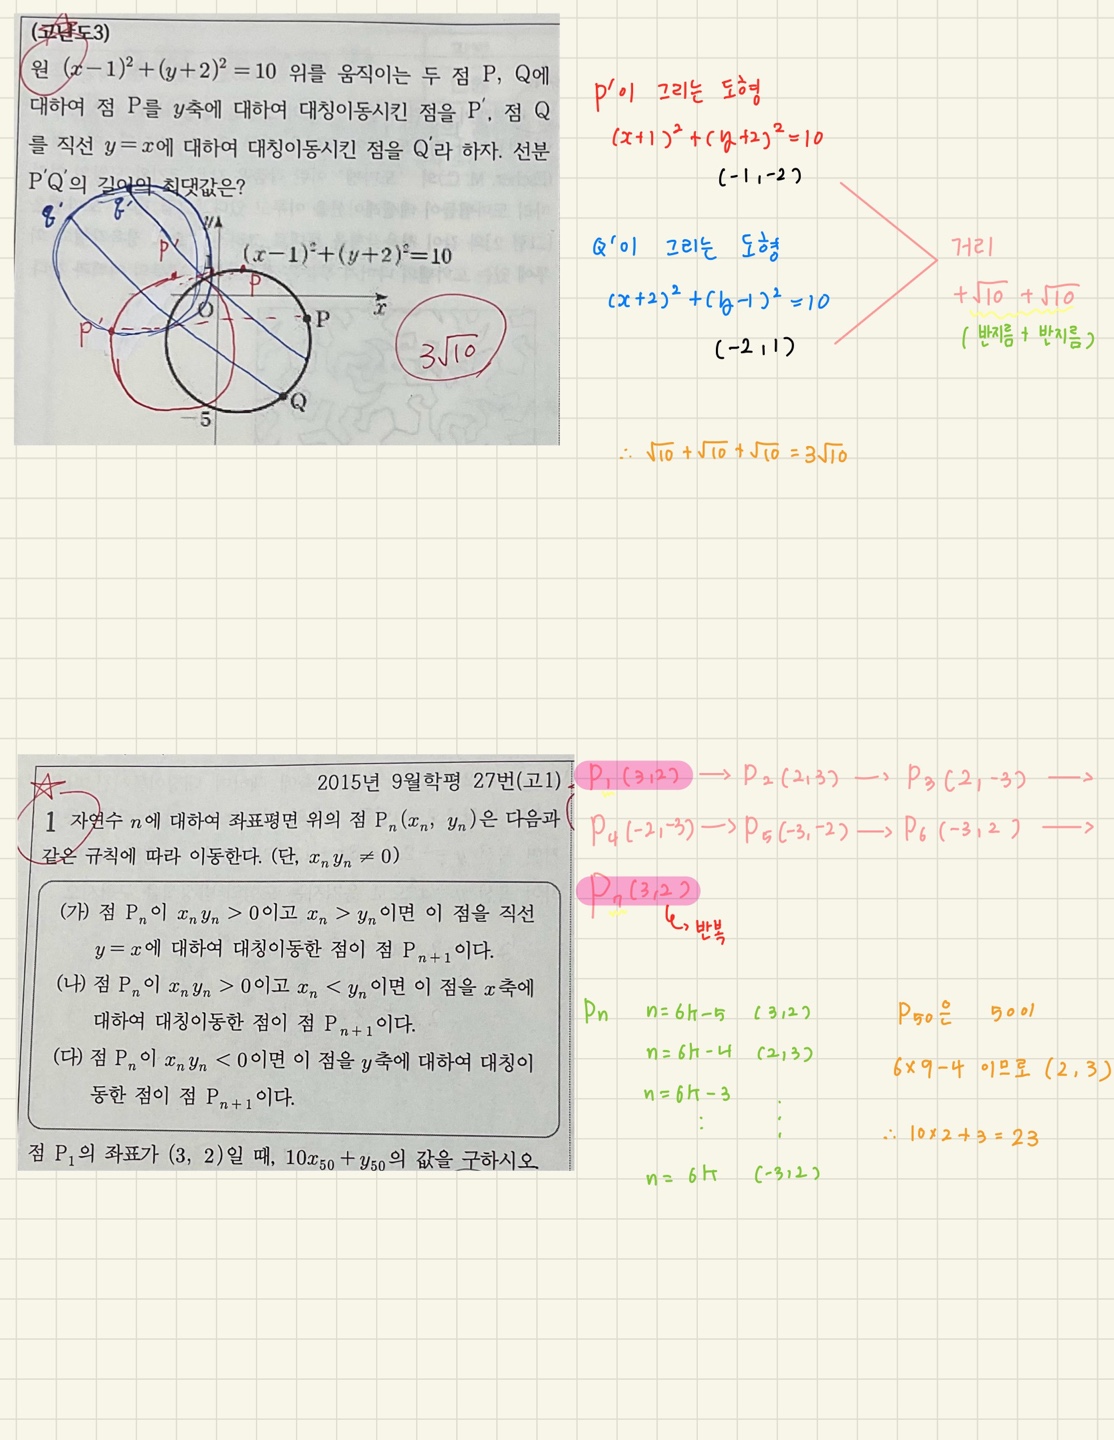 (고난도3)
원 (x-1)²+(y+2)²=10 위를 움직이는 두 점 P, Q에
대하여 점 P를 y축에 대하여 대칭이동시킨 점을 P′, 점 Q
를 직선 y=x에 대하여 대칭이동시킨 점을 Q′라 하자. 선분
P′Q′의 길이의 최댓값은?
y
(x-1)²+(y+2)²=10
P′
P
O
x
P′
P
3√10
Q
-5
P′이 그리는 도형
(x+1)²+(y+2)²=10
(-1,-2)
Q′이 그리는 도형
(x+2)²+(y-1)²=10
(-2,1)
거리
+√10 +√10
(반지름 + 반지름)
∴ √10+√10+√10=3√10
2015년 9월학평 27번(고1)
1 자연수 n에 대하여 좌표평면 위의 점 Pₙ(xₙ, yₙ)은 다음과
같은 규칙에 따라 이동한다. (단, xₙyₙ ≠ 0)
(가) 점 Pₙ이 xₙyₙ > 0이고 xₙ > yₙ이면 이 점을 직선
y=x에 대하여 대칭이동한 점이 점 Pₙ₊₁이다.
(나) 점 Pₙ이 xₙyₙ > 0이고 xₙ < yₙ이면 이 점을 x축에
대하여 대칭이동한 점이 점 Pₙ₊₁이다.
(다) 점 Pₙ이 xₙyₙ < 0이면 이 점을 y축에 대하여 대칭이
동한 점이 점 Pₙ₊₁이다.
점 P₁의 좌표가 (3, 2)일 때, 10x₅₀+y₅₀의 값을 구하시오
P₁(3,2) → P₂(2,3) → P₃(2,-3) →
P₄(-2,-3) → P₅(-3,-2) → P₆(-3,2) →
P₇(3,2)
↳ 반복
Pₙ n=6k-5 (3,2)
n=6k-4 (2,3)
n=6k-3
⋮ ⋮
n=6k (-3,2)
P₅₀은 50이
6×9-4 이므로 (2,3)
∴ 10×2+3=23